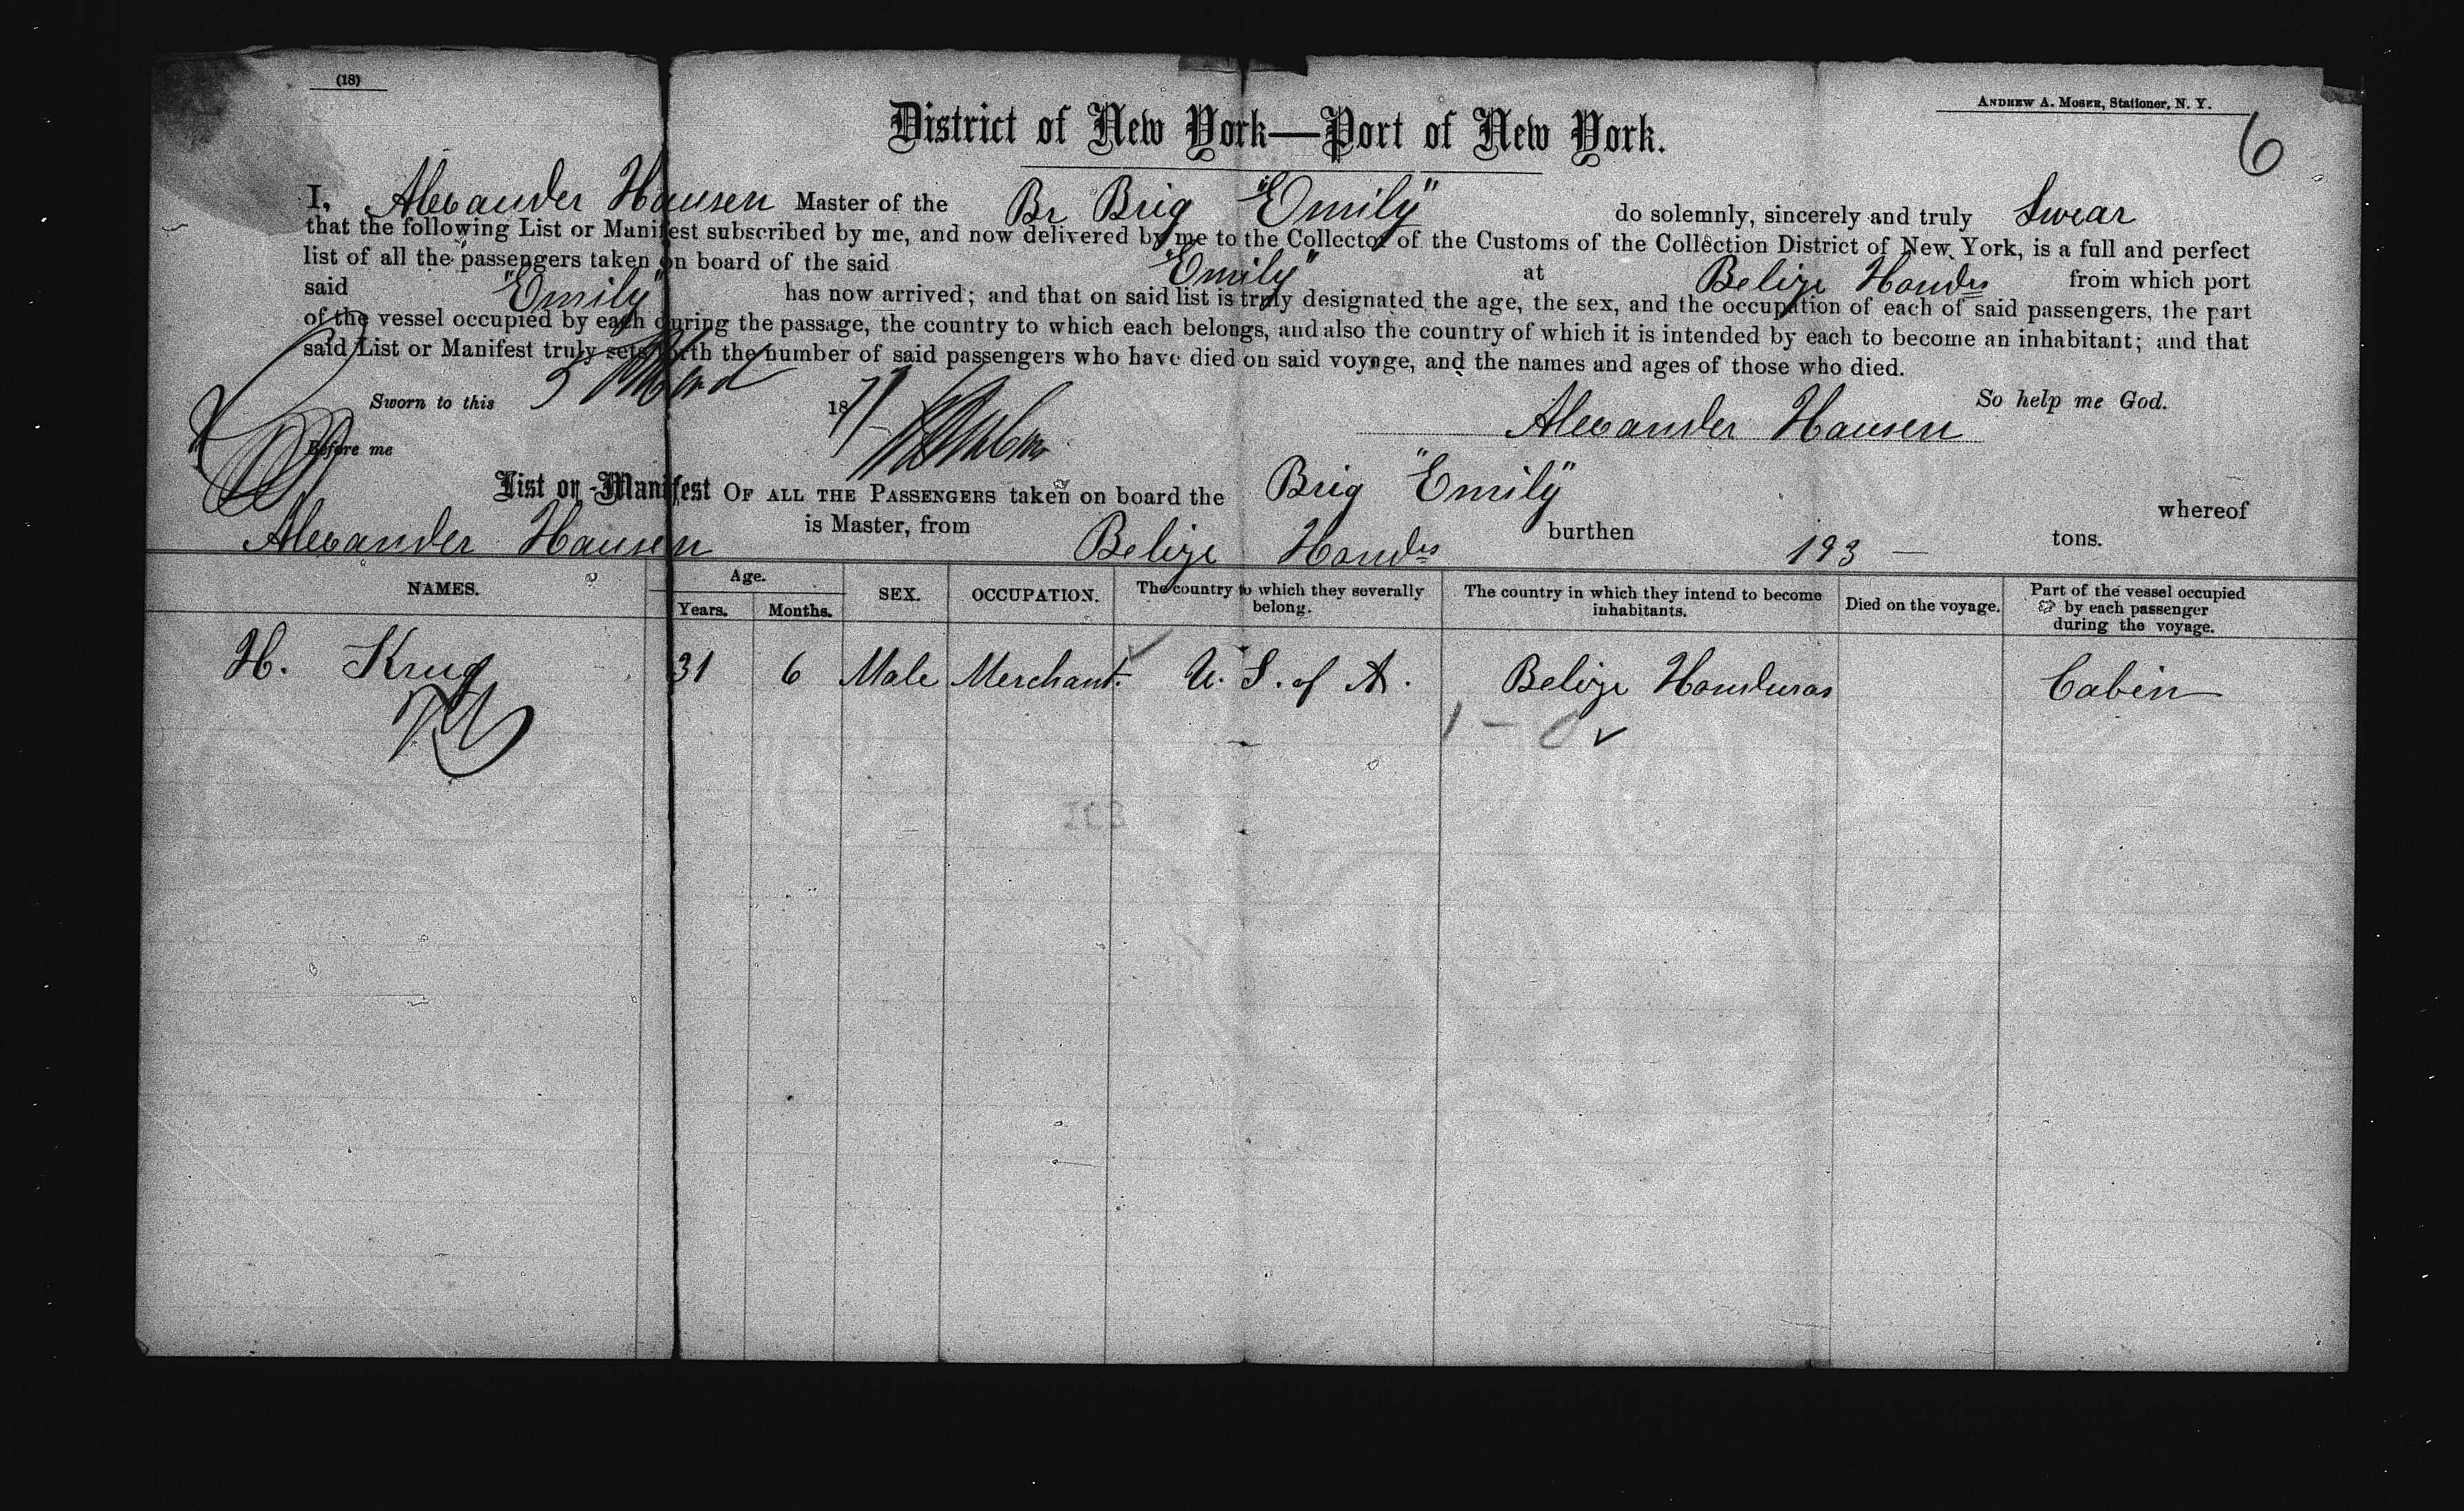 (18)
ANDREW A. MOSER, Stationer, N. Y.
6
District of New York—Port of New York.
I, Alexander Hansen Master of the Br Brig "Emily" do solemnly, sincerely and truly Swear
that the following List or Manifest subscribed by me, and now delivered by me to the Collector of the Customs of the Collection District of New York, is a full and perfect
list of all the passengers taken on board of the said "Emily" at Belize Hondus from which port
said "Emily" has now arrived; and that on said list is truly designated the age, the sex, and the occupation of each of said passengers, the part
of the vessel occupied by each during the passage, the country to which each belongs, and also the country of which it is intended by each to become an inhabitant; and that
said List or Manifest truly sets forth the number of said passengers who have died on said voyage, and the names and ages of those who died.
Sworn to this 18 So help me God.
Alexander Hansen
Before me
List or Manifest OF ALL THE PASSENGERS taken on board the Brig "Emily" whereof
Alexander Hansen is Master, from Belize Honds burthen 193 — tons.
NAMES. Age. Years. Months. SEX. OCCUPATION. The country to which they severally belong. The country in which they intend to become inhabitants. Died on the voyage. Part of the vessel occupied by each passenger during the voyage.
H. Krug 31 6 Male Merchant. U. S. of A. Belize Honduras Cabin
1 - 0